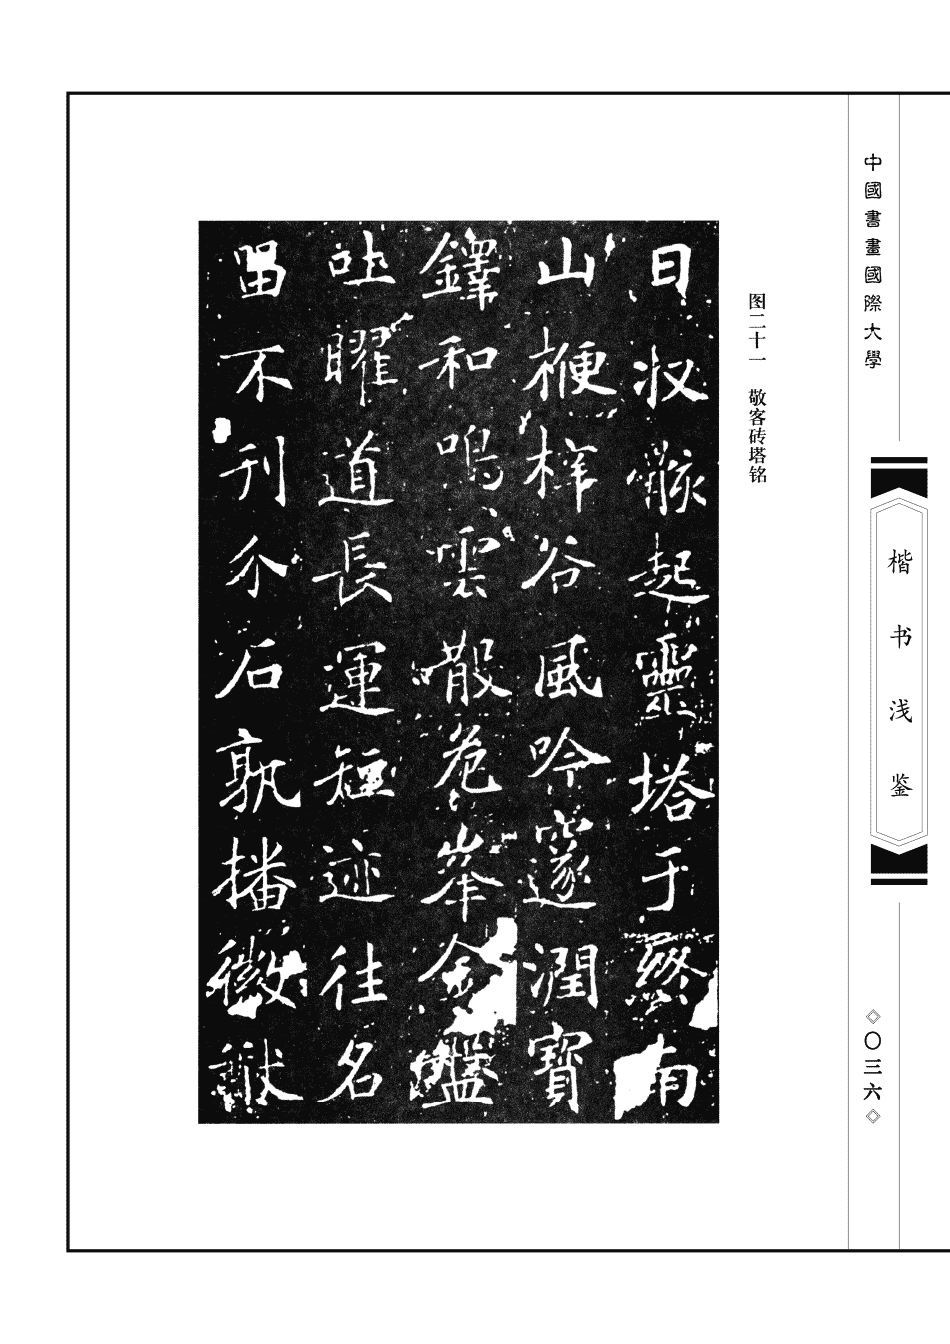 中國書畫國際大學
楷书浅鉴
〇三六
图二十一 敬客砖塔铭
日收骸起靈塔于終南
山梗梓谷風吟邃澗寶
鐸和鳴雲散危峯金盤
吐曜道長運短迹往名
留不刊介石孰播徽猷